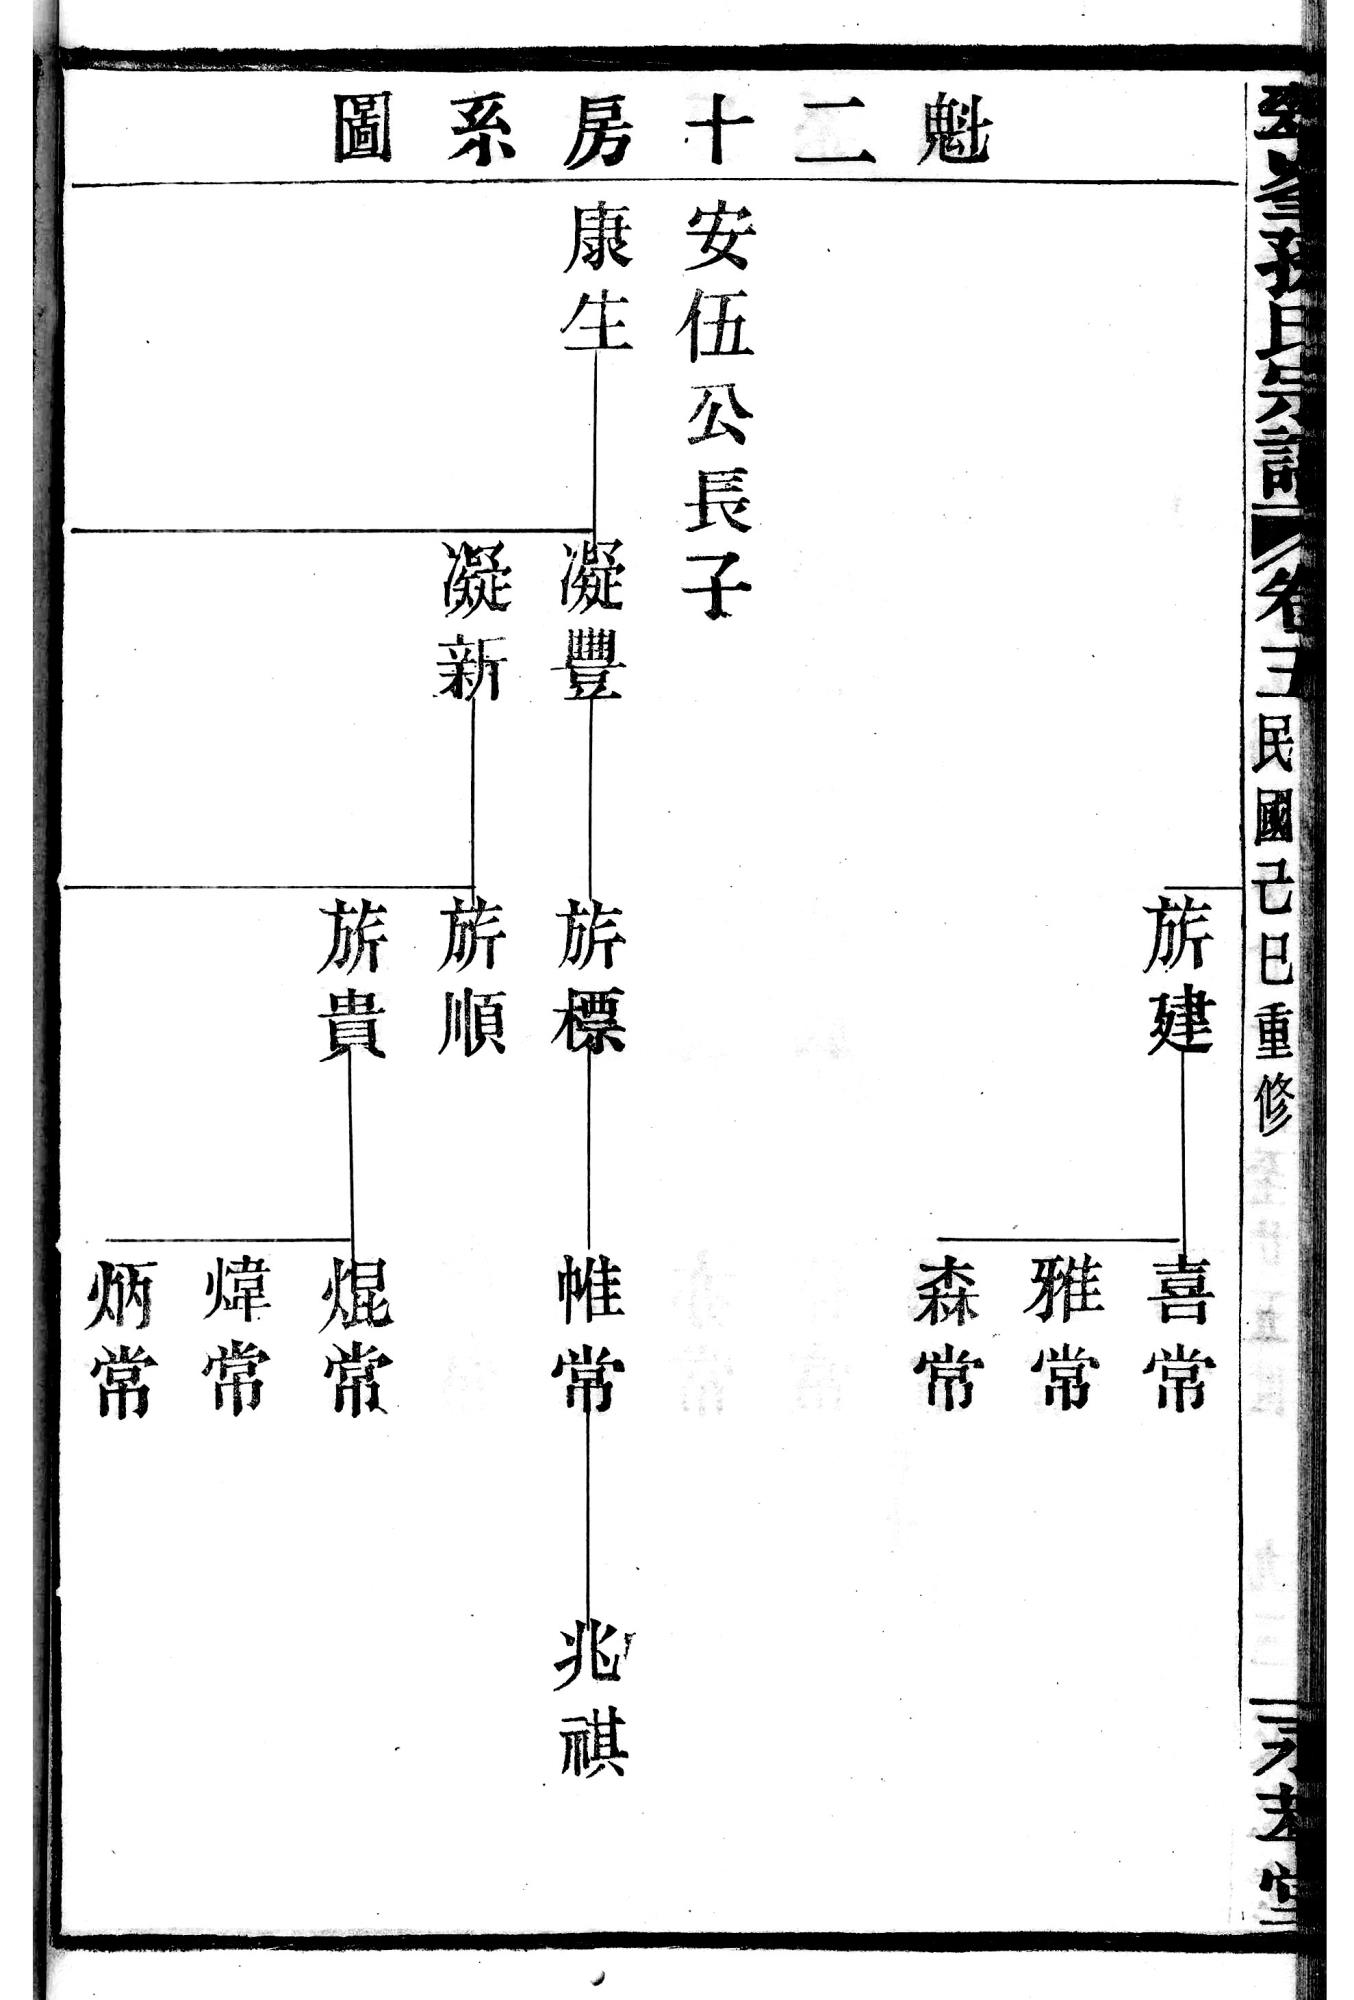 魁二十房系圖
孫氏宗譜
卷五
民國己巳重修
旂建
喜常
雅常
森常
安伍公長子
康生
凝豐
凝新
旂標
旂順
旂貴
帷常
焜常
煒常
炳常
兆祺